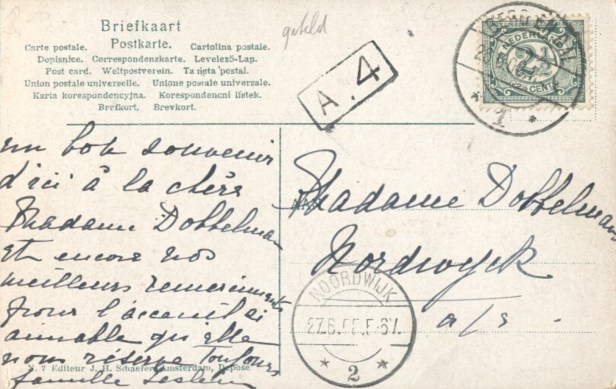 Briefkaart
Carte postale. Postkarte. Cartolina postale.
Dopisnice. Correspondenzkarte. Levelező-Lap.
Post card. Weltpostverein. Tarjeta postal.
Union postale universelle. Unione postale universale.
Karta korespondencyjna. Korespondenční lístek.
Brefkort. Brevkort.
A.4
NEDERLAND
2½
CENT
1
un bon souvenir
d'ici à la chère
Madame Dobbelman
et encore nos
meilleurs remerciments
pour l'accueil si
aimable qu'elle
nous réserve toujours
famille
Madame Dobbelman
Nordwyck
a/s
NOORDWIJK
27.6. 5-6V.
2
N. 7 Editeur J. H. Schaefer Amsterdam, Déposé